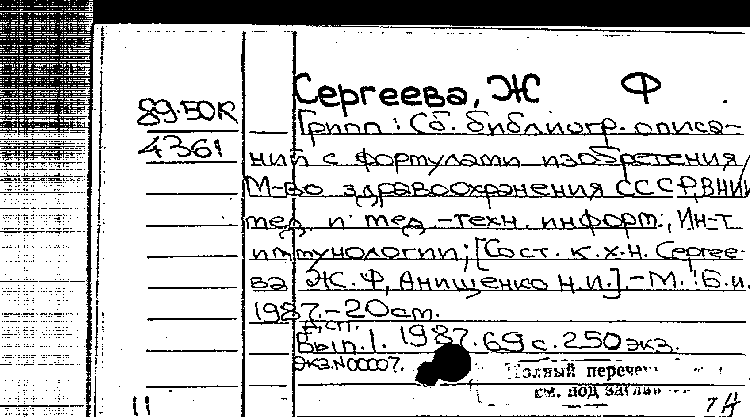 Сергеева, Ж Ф
89-50К
Грипп : Сб. библиогр. описа-
4361
ний с формулами изобретения /
М-во здравоохранения СССР, ВНИИ
мед. и мед.-техн. информ., Ин-т
иммунологии; [Сост. к.х.н. Сергее-
ва Ж.Ф., Анищенко Н.И.]. - М. : Б.и.
1987. - 20 см.
ДСП.
Вып. 1. 1987. 69 с. 250 экз.
Экз. N00007.
Полный перечень
см. под заглав
11